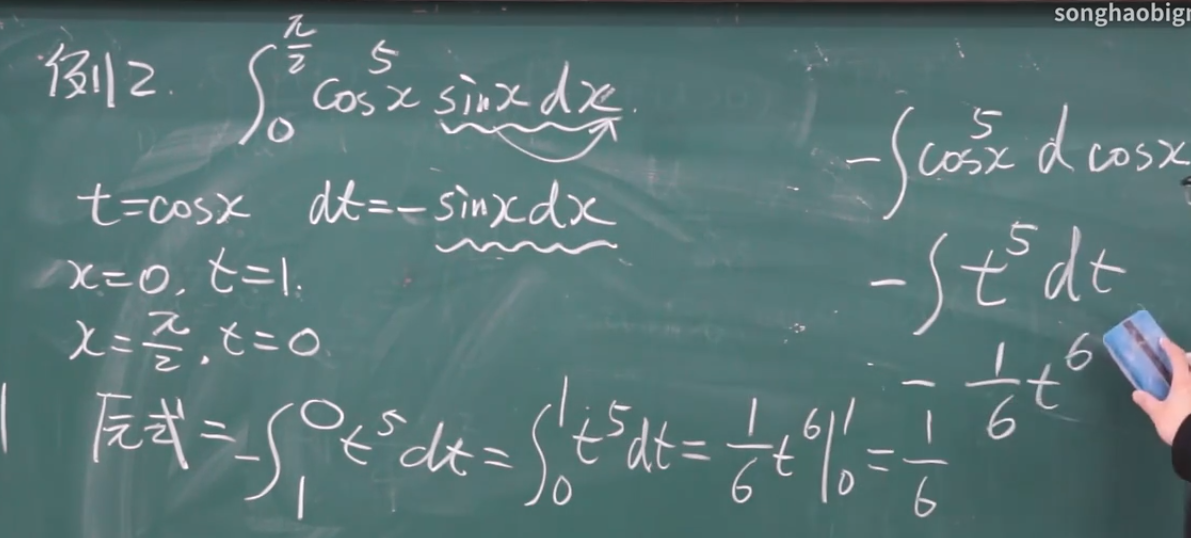 songhaobigr
例2. ∫₀^{π/2} cos⁵x sinx dx.
t=cosx dt=-sinxdx
x=0, t=1.
x=π/2, t=0
原式=-∫₁⁰ t⁵dt=∫₀¹ t⁵dt=1/6 t⁶|₀¹=1/6
-∫cos⁵x d cosx
-∫t⁵dt
-1/6 t⁶